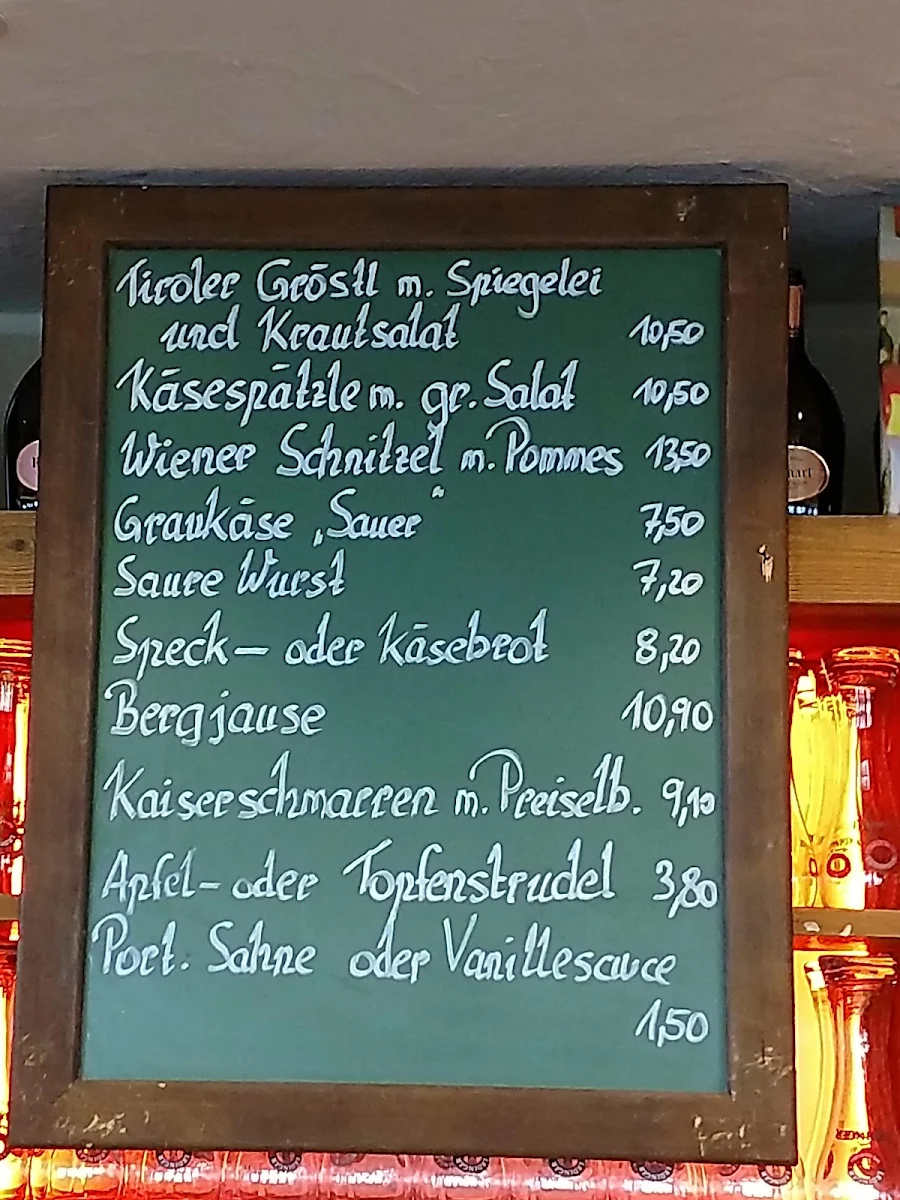 Tiroler Gröstl m. Spiegelei
und Krautsalat 10,50
Käsespätzle m. gr. Salat 10,50
Wiener Schnitzel m. Pommes 13,50
Graukäse „Sauer" 7,50
Saure Wurst 7,20
Speck- oder Käsebrot 8,20
Bergjause 10,90
Kaiserschmarren m. Preiselb. 9,10
Apfel- oder Topfenstrudel 3,80
Port. Sahne oder Vanillesauce
1,50